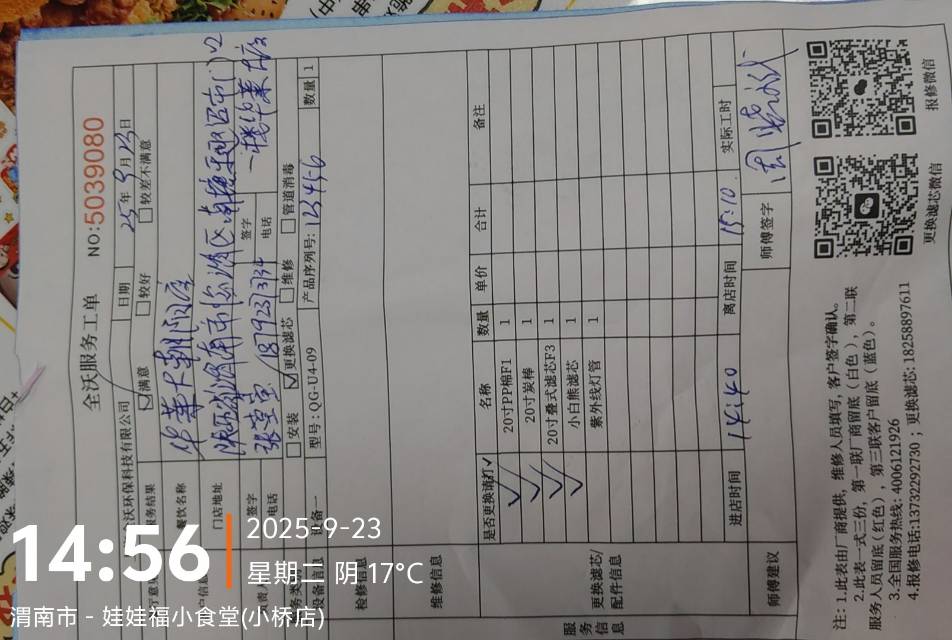 全沃服务工单
NO:5039080
全沃环保科技有限公司
日期
25年9月23日
服务结果
满意
较好
较差不满意
餐饮名称
华莱士朝阳店
门店地址
陕西省渭南市临渭区
签字
张萱萱
签字
电话
电话
安装
更换滤芯
维修
管道消毒
设备一
型号:QG-U4-09
产品序列号:123456
数量
1
检修信息
维修信息
服务信息
更换滤芯/配件信息
是否更换请打✓
名称
数量
单价
合计
备注
✓
20寸PP棉F1
1
✓
20寸炭棒
1
✓
20寸叠式滤芯F3
1
✓
小白熊滤芯
1
紫外线灯管
1
进店时间
14:40
离店时间
15:10
实际工时
师傅建议
师傅签字
注:1.此表由厂商提供,维修人员填写,客户签字确认。
2.此表一式三份,第一联厂商留底(白色),第二联
服务人员留底(红色),第三联客户留底(蓝色)。
3.全国服务热线:4006121926
4.报修电话:13732292730;更换滤芯:18258897611
更换滤芯微信
报修微信
14:56
2025-9-23
星期二 阴 17°C
渭南市 - 娃娃福小食堂(小桥店)